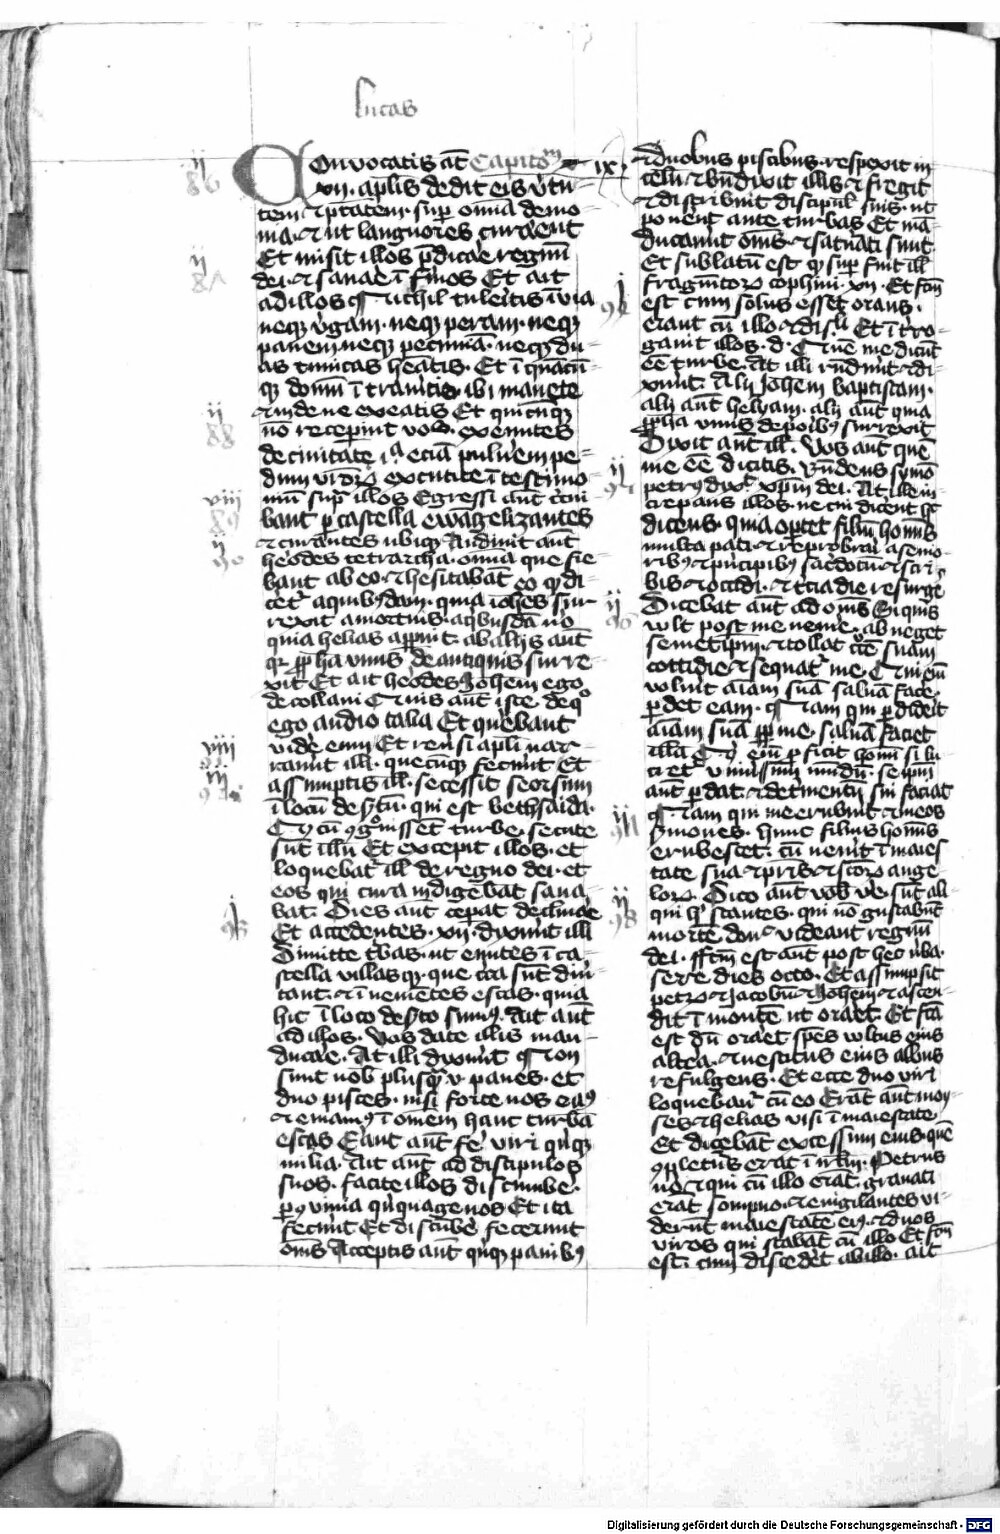 lucas
Convocatis aūt Capitom ix
xii. aplis dedit eis vtu
tem et ptatem. sup omia demo
nia. et ut languores curarent
Et misit illos pdicare regnū
dei. et sanare īfirmos Et ait
ad illos Nichil tuleritis ī via
neq virgam. neq peram. neq
panem neq pecuniā. neq du
as tunicas heatis. Et ī quācū
q domū ītraueritis. ibi manete
et inde ne exeatis Et quicūq
nō recepint vos. exeuntes
de ciuitate illa eciā puluerem pe
dum vrorum excutite ī testimo
niū supra illos Egressi aūt circui
bant p castella ewāgelizantes
et curantes ubiq Audiuit aūt
herodes tetrarcha. omīa que fie
bant ab eo. et hesitabat eo q di
ceret a quibusdam. quia iohes sur
rexit a mortuis. a qbusdā vo
quia helias apparuit. ab alijs aūt
qr ppha vnus de antiquis surre
xit Et ait herodes Johem ego
decollaui Quis aūt iste de quo
ego audio talia Et querebant
videre eum Et reuersi apli nar
rauerūt illi. quecūq fecerūt Et
assumptis illis. secessit seorsum
ī locū desertū. qui est bethsaida.
Qd cū cognouissent turbe. secute
sūt illū Et excepit illos. et
loquebatur illis de regno dei. et
eos qui cura indigebāt sana
bat. Dies aūt ceperat declinare
Et accedentes. xii. dixerūt illi
Dimitte turbas. ut euntes ī ca
stella villasq. que circa sūt diuer
tant. et īueniētes escas. quia
hic ī loco deserto sumus. Ait aūt
ad illos. Vos date illis man
ducare. At illi dixerūt Non
sunt nob plusq v panes. et
duo pisces. nisi forte nos eamus
et emamus ī omēm hanc turbā
escas Erant aūt fere viri quīq
milia. Ait aūt ad discipulos
suos. facite illos discumbere.
per conuiuia quīquagenos Et ita
fecerūt Et discumbere fecerunt
omes Acceptis aūt quīq panibus
et duobus piscibus. respexit in
celū et bndixit illis et fregit
et distribuit discipulis suis. ut
ponerēt ante turbas Et mā
ducauerūt omes. et saturati sunt.
Et sublatū est qd sup fuit illis
fragmētorum cophini. xii. Et factū
est cum solus esset orans.
erant cū illo et discipuli Et īterro
gauit illos. d. Quē me dicūt
eē turbe. At illi rnderūt et di
xerūt. Alij Johem baptistam.
alij aūt helyam. alij aūt quia
ppha vnus de poribus surrexit
Dixit aūt illis. Vos aūt quē
me eē dicitis. Rndens symō
petrus dixit. xpm dei. At ille in
crepans illos. ne cui dicerent hoc
dicens. quia oportet filiū homis
multa pati. et reprobari a senio
ribus et principibus sacerdotū et scri
bis et occidi. et tercia die resurgere
Dicebat aūt ad omes Si quis
vlt post me venire. abneget
semetipm. et tollat crucē suam
cottidie et sequatur me. Qui enī
voluerit aīam suā saluā facere
perdet eam. Nam qui perdiderit
aīam suā ppter me. saluā faciet
illā Quid enī proficit homī si lu
cretur vniuersum mūdū. se ipm
aūt perdat. et detrimentū sui faciat
Nam qui me erubuerit et meos
sermones. Hunc filius homis
erubescet. cū venerit ī maies
tate sua et patris et scorum ange
lorum. Dico aūt vob vere. sūt ali
qui hic stantes. qui nō gustabūt
mortē. donec videant regnū
dei. Factū est aūt post hec verba
fere dies octo. Et assumpsit
petrum et jacobū et Johem. et ascen
dit ī montē ut oraret. Et factā
est dū oraret spēs vltus eius
altera. et uestitus eius albus
refulgens. Et ecce duo viri
loquebantur cū eo Erāt aūt moy
ses et helias visi ī maiestate.
Et dicebāt excessum eius. quē
cōpleturus erat ī ierlm. Petrus
vero et qui cū illo erāt. grauati
erāt sompno. et euigilantes vi
derūt maiestatē eius. et duos
viros qui stabāt cū illo Et factū
est. cum discederet ab illo. ait
Digitalisierung gefördert durch die Deutsche Forschungsgemeinschaft - DFG